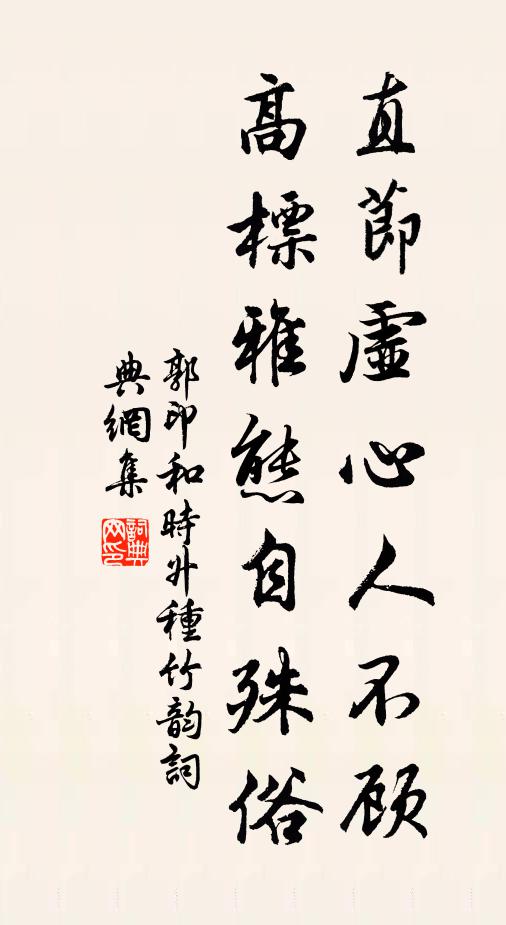 直節虛心人不顾
高標雅態自殊俗
郭印和時升種竹韵詞
典網集
詞典网印